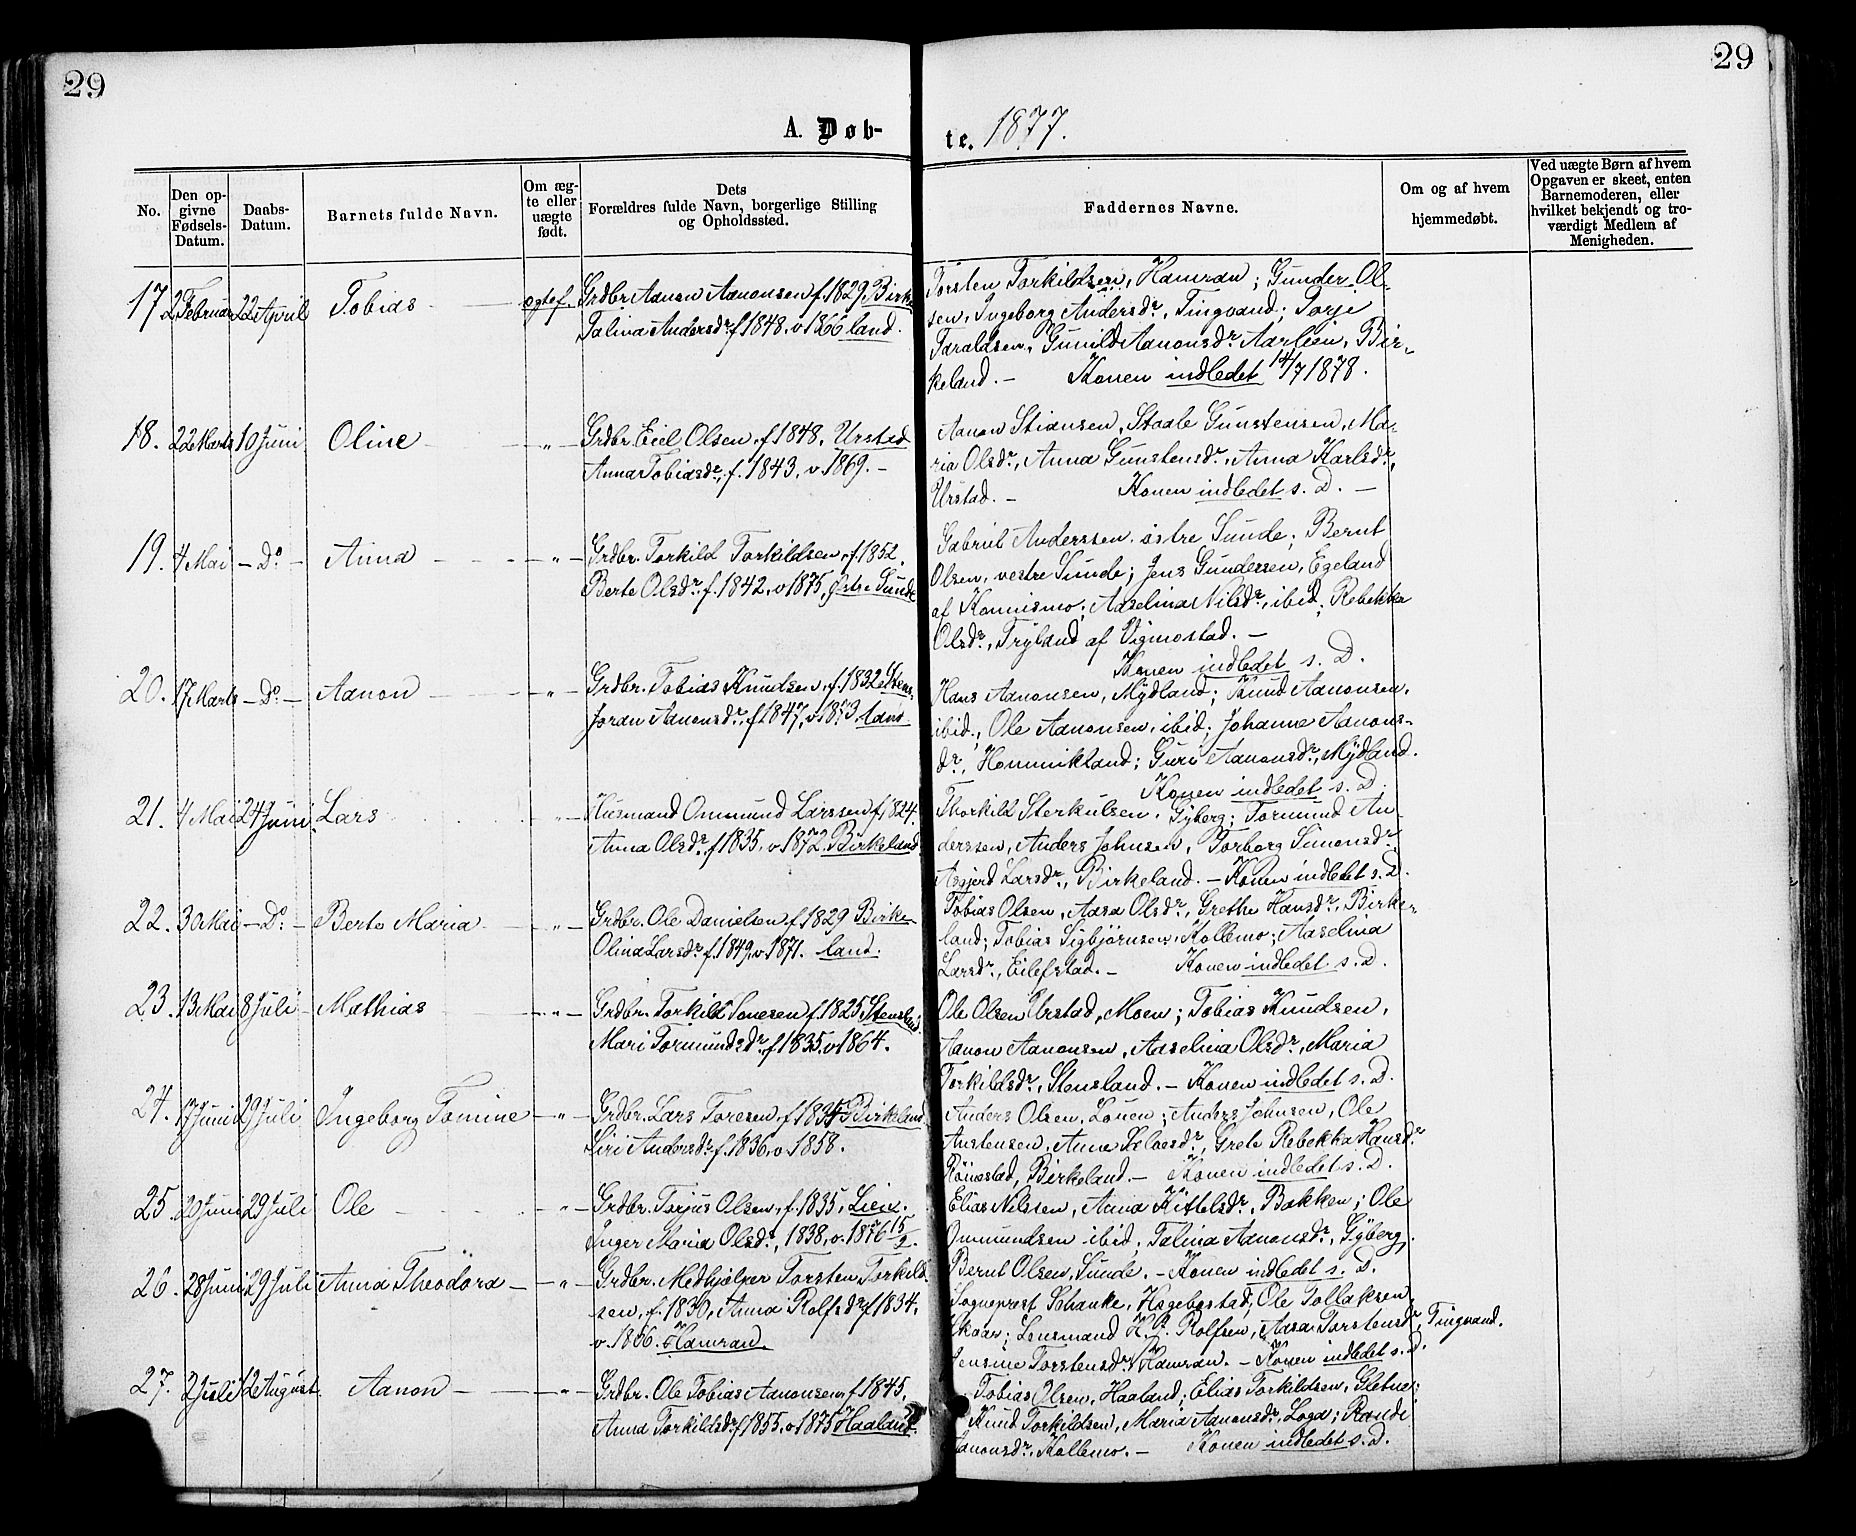 29
29
A. Døb-
te. 1877.
No.
Den op-
givne
Fødsels-
Datum.
Daabs-
Datum.
Barnets fulde Navn.
Om æg-
te eller
uægte
født.
Dets
Forældres fulde Navn, borgerlige Stilling
og Opholdssted.
Faddernes Navne.
Om og af hvem
hjemmedøbt.
Ved uægte Børn af hvem
Opgaven er skeet, enten
Barnemoderen, eller
hvilket bekjendt og tro-
værdigt Medlem af
Menigheden.
17 2 Februar 22 April Tobias — ægtef. Grdbr. Aanon Aanonsen f. 1829 Birke
Talina Andersdr. f. 1848, v. 1866 land.
Torsten Torkildsen, Hamran; Gunder Ol-
sen, Ingeborg Andersdr., Tingvand; Torje
Taraldsen, Gunild Aanonsdr. Aarlien, Bir-
keland. — Konen indledet 14/7 1878.
18. 22 Marts 10 Juni Oline — „ — Grdbr. Eiel Olsen, f. 1848, Urstad
Anna Tobiasdr., f. 1843, v. 1869. —
Aanon Stiansen, Staale Gunstensen, Ma-
ria Olsdr., Anna Gunstensdr., Anna Karlsdr.,
Urstad. — Konen indledet s. D. —
19. 4 Mai — Do — Anna — „ — Grdbr. Torkild Torkildsen, f. 1852.
Berte Olsdr. f. 1842, v. 1875, østre Sunde
Gabriel Anderssen østre Sunde; Bernt
Olsen, vestre Sunde; Jens Gundersen, Egeland
af Konnismo; Aaselina Nilsdr., ibid; Rebekka
Olsdr., Tryland af Vigmostad. —
Konen indledet s. D.
20. 17 Marts — Do — Aanon — „ — Grdbr. Tobias Knutsen, f. 1832 Stens-
Joran Aanonsdr. f. 1847, v. 1873 land
Hans Aanonsen, Mydland; Knud Aanonsen,
ibid., Ole Aanonsen, ibid; Johanne Aanons-
dr., Hommikland; Guri Aanonsdr., Mydland.
Konen indledet s. D.
21. 4 Mai 24 Juni. Lars — „ — Husmand Ommund Larssen f. 1824.
Anna Olsdr. f. 1835, v. 1872. Birkeland
Thorkild Sterkulsen, Gyberg; Tormund An-
derssen, Anders Johnsen, Torborg Simonsdr.
Asgjerd Larsdr., Birkeland. — Konen indledet s. D.
22. 30 Mai — Do — Berte Maria — „ — Grdbr. Ole Danielsen f. 1829 Birke-
Olina Larsdr. f. 1849, v. 1871. land.
Tobias Olsen, Aasa Olsdr., Grethe Hansdr., Birke-
land; Tobias Sigbjørnsen, Kollemo; Aaselina
Larsdr., Eilefstad. — Konen indledet s. D.
23. 13 Mai 8 Juli — Mathias — „ — Grdbr. Torkild Tonesen f. 1825 Stensland
Mari Tormundsdr., f. 1835. v. 1864.
Ole Olsen Urstad, Moen; Tobias Knudsen,
Aanon Aanonsen, Aaselina Olsdr., Maria
Torkildsdr., Stensland. — Konen indledet s. D.
24. 17 Juni 29 Juli Ingeborg Tomine — „ — Grdbr. Lars Toresen, f. 1834 Birkeland
Siri Andersdr. f. 1836, v. 1858.
Anders Olsen, Louen; Anders Johnsen, Ole
Austensen, Anne Selaesdr., Grete Rebekka Hansdr.
Röinestad, Birkeland. — Konen indledet s. D.
25. 20 Juni 29 Juli Ole — „ — Grdbr. Terjus Olsen, f. 1835, Lien.
Inger Maria Olsdr., 1838, v. 1876 15/2.
Elias Nilssen, Anna Kittelsdr., Bakken; Ole
Ommundsen ibid, Talina Aanonsdr., Gyberg,
Bernt Olsen, Sunde. — Konen indledet s. D.
26. 28 Juni 29 Juli Anna Theodora — „ — Grdbr. Medhjælper Torsten Torkild-
sen, f. 1830, Anna Rolfsdr. f. 1834,
v. 1856. Hamran.
Sogneprest Schanke, Hegebostad; Ole Tollaksen
Skaar; Lensmand H. A. Rolfsen, Aasa Torstensdr., Tingvand.
Jensine Torstensdr., Hamran. — Konen indledet s. D.
27. 2 Juli 12 August. Aanon — „ — Grdbr. Ole Tobias Aanonsen, f. 1845.
Anna Torkildsdr. f. 1855. v. 1875 Haaland.
Tobias Olsen, Haaland; Elias Torkildsen, Gletne;
Knud Torkildsen, Maria Aanonsdr., Loga; Randi
Aanonsdr., Kollemo. — Konen indledet s. D.